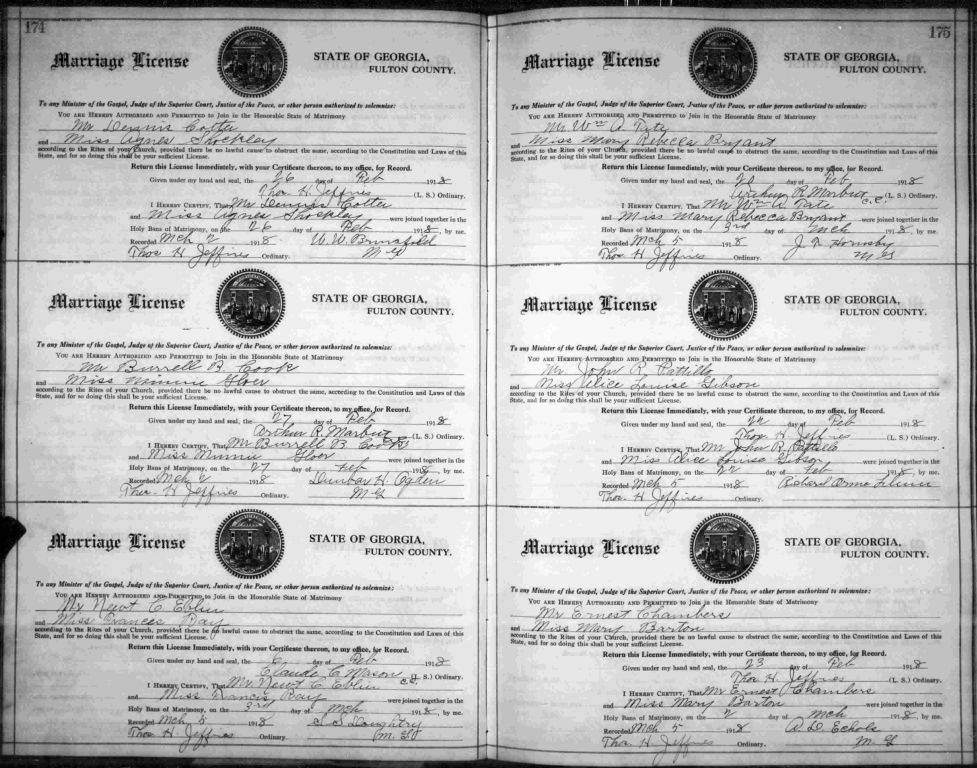 174
Marriage License
STATE OF GEORGIA,
FULTON COUNTY.
To any Minister of the Gospel, Judge of the Superior Court, Justice of the Peace, or other person authorized to solemnize:
YOU ARE HEREBY AUTHORIZED AND PERMITTED to Join in the Honorable State of Matrimony
Mr Dennis Cotter
and Miss Agnes Shockley
according to the Rites of your Church, provided there be no lawful cause to obstruct the same, according to the Constitution and Laws of this
State, and for so doing this shall be your sufficient License.
Return this License Immediately, with your Certificate thereon, to my office, for Record.
Given under my hand and seal, the 26 day of Feb 1918
Thos. H. Jeffries (L. S.) Ordinary.
I HEREBY CERTIFY, That Mr Dennis Cotter
and Miss Agnes Shockley were joined together in the
Holy Bans of Matrimony, on the 26 day of Feb 1918, by me.
Recorded Mch 2 1918 W. W. Brinsfield
Thos H Jeffries Ordinary. M G
Marriage License
STATE OF GEORGIA,
FULTON COUNTY.
To any Minister of the Gospel, Judge of the Superior Court, Justice of the Peace, or other person authorized to solemnize:
YOU ARE HEREBY AUTHORIZED AND PERMITTED to Join in the Honorable State of Matrimony
Mr Burrell B. Cook
and Miss Minnie Gloer
according to the Rites of your Church, provided there be no lawful cause to obstruct the same, according to the Constitution and Laws of this
State, and for so doing this shall be your sufficient License.
Return this License Immediately, with your Certificate thereon, to my office, for Record.
Given under my hand and seal, the 27 day of Feb 1918
Arthur R. Marbut (L. S.) Ordinary.
I HEREBY CERTIFY, That Mr Burrell B Cook
and Miss Minnie Gloer were joined together in the
Holy Bans of Matrimony, on the 27 day of Feb 1918, by me.
Recorded Mch 2 1918 Dunbar H. Ogden
Thos. H Jeffries Ordinary. M G
Marriage License
STATE OF GEORGIA,
FULTON COUNTY.
To any Minister of the Gospel, Judge of the Superior Court, Justice of the Peace, or other person authorized to solemnize:
YOU ARE HEREBY AUTHORIZED AND PERMITTED to Join in the Honorable State of Matrimony
Mr Newt C Eblin
and Miss Frances Ray
according to the Rites of your Church, provided there be no lawful cause to obstruct the same, according to the Constitution and Laws of this
State, and for so doing this shall be your sufficient License.
Return this License Immediately, with your Certificate thereon, to my office, for Record.
Given under my hand and seal, the day of Feb 1918
Claude C Mason (L. S.) Ordinary.
I HEREBY CERTIFY, That Mr Newt C Eblin
and Miss Francis Ray were joined together in the
Holy Bans of Matrimony, on the 3rd day of Mch 1918, by me.
Recorded Mch 5 1918 Daughtry
Thos H Jeffries Ordinary. M. G
175
Marriage License
STATE OF GEORGIA,
FULTON COUNTY.
To any Minister of the Gospel, Judge of the Superior Court, Justice of the Peace, or other person authorized to solemnize:
YOU ARE HEREBY AUTHORIZED AND PERMITTED to Join in the Honorable State of Matrimony
Mr Wm A. Tate
and Miss Mary Rebecca Bryant
according to the Rites of your Church, provided there be no lawful cause to obstruct the same, according to the Constitution and Laws of this
State, and for so doing this shall be your sufficient License.
Return this License Immediately, with your Certificate thereon, to my office, for Record.
Given under my hand and seal, the 20 day of Feb 1918
Arthur R. Marbut (L. S.) Ordinary.
C. C.
I HEREBY CERTIFY, That Mr Wm A Tate
and Miss Mary Rebecca Bryant were joined together in the
Holy Bans of Matrimony, on the 3rd day of Mch 1918, by me.
Recorded Mch 5 1918 Hornsby
Thos H Jeffries Ordinary. M G
Marriage License
STATE OF GEORGIA,
FULTON COUNTY.
To any Minister of the Gospel, Judge of the Superior Court, Justice of the Peace, or other person authorized to solemnize:
YOU ARE HEREBY AUTHORIZED AND PERMITTED to Join in the Honorable State of Matrimony
Mr John R. Pattillo
and Miss Alice Louise Gibson
according to the Rites of your Church, provided there be no lawful cause to obstruct the same, according to the Constitution and Laws of this
State, and for so doing this shall be your sufficient License.
Return this License Immediately, with your Certificate thereon, to my office, for Record.
Given under my hand and seal, the 22 day of Feb 1918
Thos H Jeffries (L. S.) Ordinary.
I HEREBY CERTIFY, That Mr John R. Pattillo
and Miss Alice Louise Gibson were joined together in the
Holy Bans of Matrimony, on the 22 day of Feb 1918, by me.
Recorded Mch 5 1918 Richard Orme Flinn
Thos. H Jeffries Ordinary.
Marriage License
STATE OF GEORGIA,
FULTON COUNTY.
To any Minister of the Gospel, Judge of the Superior Court, Justice of the Peace, or other person authorized to solemnize:
YOU ARE HEREBY AUTHORIZED AND PERMITTED to Join in the Honorable State of Matrimony
Mr Ernest Chambers
and Miss Mary Barton
according to the Rites of your Church, provided there be no lawful cause to obstruct the same, according to the Constitution and Laws of this
State, and for so doing this shall be your sufficient License.
Return this License Immediately, with your Certificate thereon, to my office, for Record.
Given under my hand and seal, the 23 day of Feb 1918
Thos H. Jeffries (L. S.) Ordinary.
I HEREBY CERTIFY, That Mr Ernest Chambers
and Miss Mary Barton were joined together in the
Holy Bans of Matrimony, on the 2 day of Mch 1918, by me.
Recorded Mch 5 1918 A. D. Echols
Thos. H Jeffries Ordinary. M. G